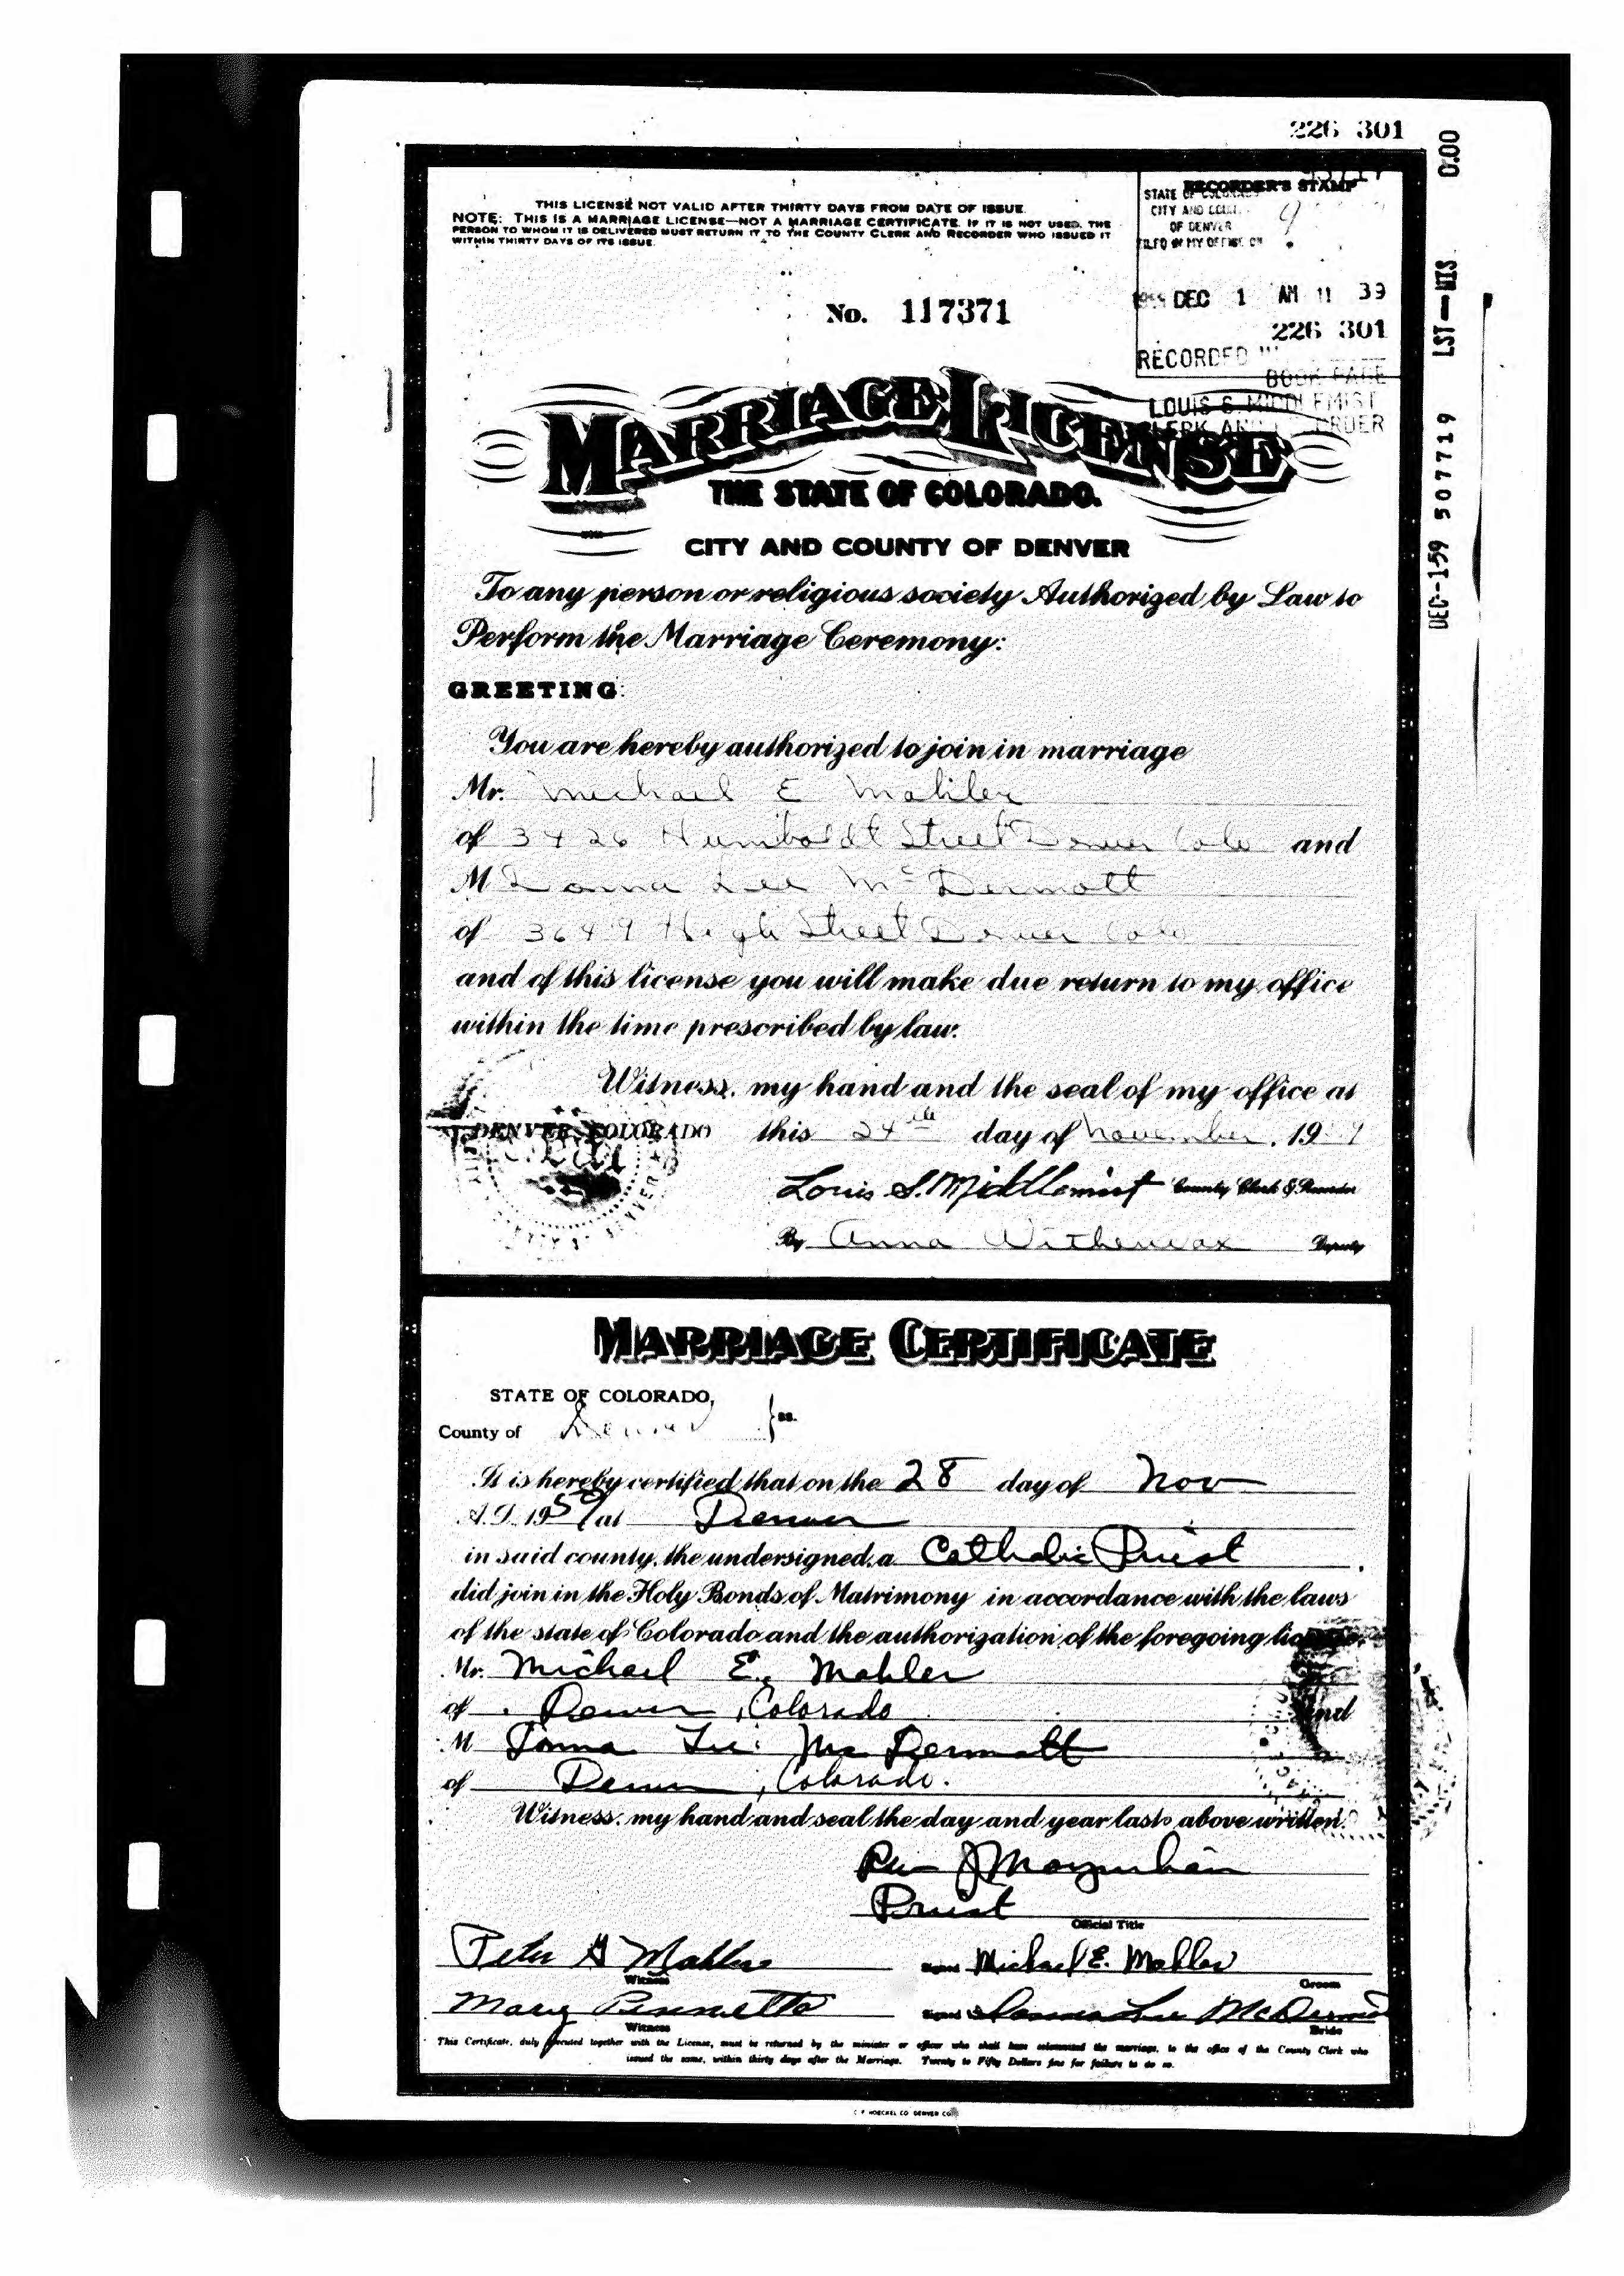 226 301
THIS LICENSE NOT VALID AFTER THIRTY DAYS FROM DATE OF ISSUE.
NOTE: THIS IS A MARRIAGE LICENSE—NOT A MARRIAGE CERTIFICATE. IF IT IS NOT USED, THE
PERSON TO WHOM IT IS DELIVERED MUST RETURN IT TO THE COUNTY CLERK AND RECORDER WHO ISSUED IT
WITHIN THIRTY DAYS OF ITS ISSUE.
RECORDER'S STAMP
STATE OF COLORADO
CITY AND
OF DENVER
FILED IN MY OFFICE ON
DEC 1 AM 11 39
226 301
RECORDED IN
BOOK PAGE
LOUIS S. MIDDLEMIST
CLERK AND RECORDER
DEC--1-59 507719 LST—MIS 0.00
No. 117371
MARRIAGE LICENSE
THE STATE OF COLORADO.
CITY AND COUNTY OF DENVER
To any person or religious society Authorized by Law to
Perform the Marriage Ceremony:
GREETING:
You are hereby authorized to join in marriage
Mr. Michael E Mahler
of 3426 Humboldt Street Denver Colo and
M Donna Lee McDermott
of 3649 High Street Denver Colo
and of this license you will make due return to my office
within the time prescribed by law.
Witness, my hand and the seal of my office at
DENVER, COLORADO this 24th day of November, 1959
Louis S. Middlemist County Clerk & Recorder
By Anna Witherwax Deputy
MARRIAGE CERTIFICATE
STATE OF COLORADO,
County of Denver ss.
It is hereby certified that on the 28 day of Nov
A.D. 1959 at Denver
in said county, the undersigned, a Catholic Priest
did join in the Holy Bonds of Matrimony in accordance with the laws
of the state of Colorado and the authorization of the foregoing license,
Mr. Michael E. Mahler
of Denver, Colorado and
M Donna Lee McDermott
of Denver, Colorado.
Witness, my hand and seal the day and year last above written.
Rev J Moynihan
Priest
Official Title
Peter G Mahler
Witness
Signed Michael E. Mahler
Groom
Mary
Witness
Signed Donna Lee McDermott
Bride
This Certificate, duly executed together with the License, must be returned by the minister or officer who shall have solemnized the marriage, to the office of the County Clerk who
issued the same, within thirty days after the Marriage. Twenty to Fifty Dollars fine for failure to do so.
C. F. HOECKEL CO. DENVER COLO